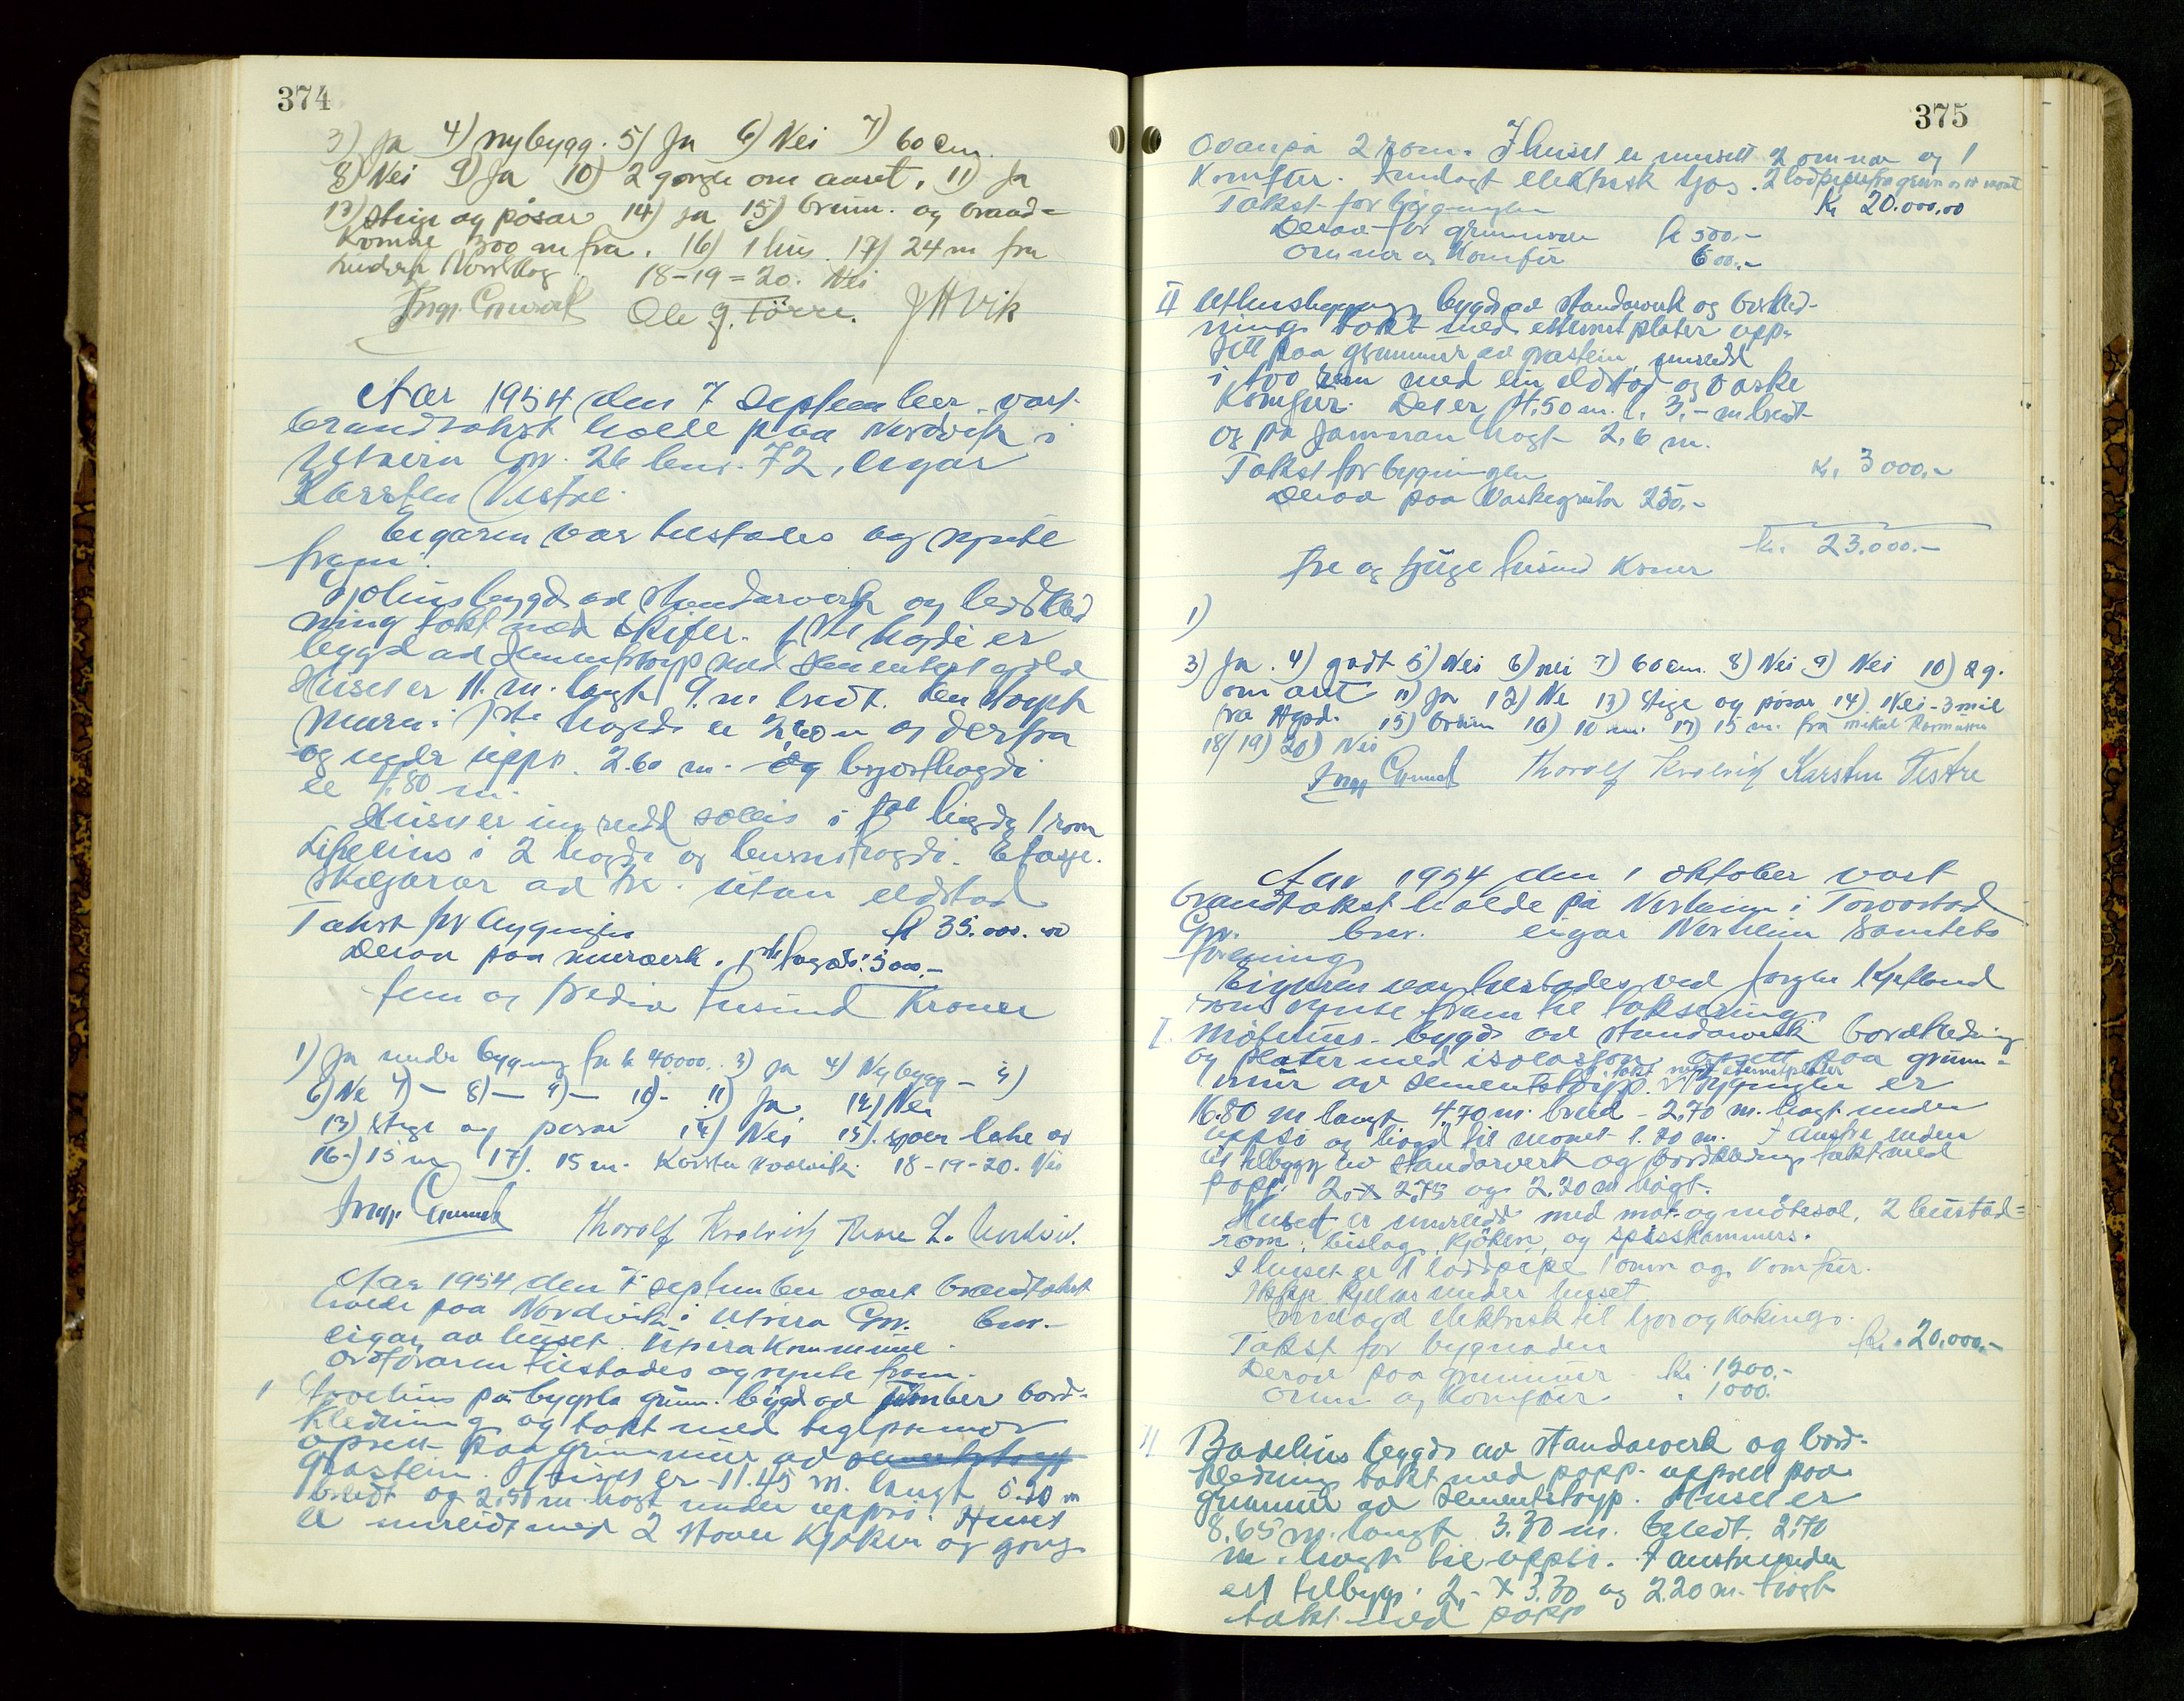 374
3) Ja 4) nybygg. 5) Ja 6) Nei 7) 60 cm.
8) Nei 9) Ja 10) 2 gonger om aaret. 11) Ja
13) Stige og pósar 14) Ja 15) brunn. og brand=
komne 300 m fra. 16) 1 hus. 17) 24 m fra
18-19=20. Nei
Ole J. Törre. J H Vik
Aar 1954 den 7 September vart
brandtakst halde paa Nordvik i
Utsira Gn. 26 bnr. 72, eigar
Karsten Vestre.
Eigaren var tilstades og synte
fram.
Sjohus bygd av standarverk og bordkled
ning takt med skifer. 1ste hogdi er
bygd av sementstoyp med sementert golv
Huset er 11. m. langt 9. m bredt. Den stoypte
muren i 1ste hogdi er 3,60 m og derfra
og under upps. 2.60 m. og brjosthogdi
er 4,80 m.
Huset er innredd soleis i 1ste hogdi 1 rom
Likeeins i 2 hogdi og hursnshogdi. Etasje
skiljarar av tre. utan eldstad
Takst for bygningen kr 35.000.00
Derav paa murverk. 1ste hogdi: 5000.-
fem og tredive tusind Kroner
1) Ja under bygning for kr 40000. 3) Ja 4) Nybygg - 5)
6) Ne 7) - 8) - 9) - 10) - 11) Ja. 12) Nei
13) Stige og pósar 14) Nei 15). sjoen like ve
16-) 15 m 17). 15 m. Karsten Nordvik. 18-19-20. Nei
Thorolf Kvalvik Thore L. Nordvik.
Aar 1954 den 7 september vart brandtakst
halde paa Nordvik i Utsira Gn. bnr.-
eigar av huset Utsira Kommune.
ordforaren tilstades og synte fram.
1 Vovehus pa bygsla grunn. bygd av timber bord-
kledning og takt med teglpanner
opsett paa grunnmur av sementstoyp
graastein. Huset er 11.45 m. langt 5.20 m
bredt og 2,50 m. hogt under uppsi. Huset
er innreidt med 2 stover kjøken og gong
375
Ovanpå 2 rom. I huset er innsett 2 omnar og 1
Komfur. Innlagt elektrisk ljos. 2 lodpipe fra grunn
Takst for bygningen Kr 20.000,00
Derav for grunnmur kr 500.-
Omnar og Komfur 600.-
II Uthusbygning bygd av standarverk og bordkled-
ning takt med etternitplater opp-
sett paa grunnmur av grastein, innredd
i too rom med ein eldstad og vaske
Komfur. Det er 4,50 m. l. 3,- m bredt
og på jamnan hogt 2,6 m.
Takst for bygningen Kr. 3000.-
Derav paa Vaskegruta 250.-
kr. 23.000.-
tre og tjuge tusind kroner
1)
3) Ja. 4) godt 5) Nei 6) nei 7) 60 cm. 8) Nei 9) Nei 10) 2 g.
om aret 11) Ja 12) Ne 13) Stige og pósar 14). Nei - 3 mil
fra Hgsd. 15) brunn 16) 10 m. 17) 15 m. fra Mikal Rasmussen
18/19) 20) Nei
Thorolf Kvalvik Karsten Vestre
Aar 1954 den 1 oktober vart
brandtakst halde på Norheim i Torvastad
Gn. bnr. eigar Norheim Samtebo
forening.
Eigaren var tilstades ved Jorgen Kjetland
som synte fram til taksering.
I. Møtehus- bygd av standarverk bordkledning
og plater med isolasjon, opsett paa grunn-
takt med eternitplater
mur av sementstøypp. Bygningen er
16.80 m langt 4,70 m. breid - 2,70 m. hogt under
uppsi og hogd til monet 1.20 m. I austre enden
eit tilbygg av standarverk og bordkledning takt med
papp. 2,- x 2,75 og 2.20 m høgt.
Huset er innreidd med mat- og møtesal, 2 bustad=
rom, bislag, kjöken, og spisskammers.
I huset er 1 loddpipe 1 omn og komfur.
Ikkje kjellar under huset.
Innlagd elektrisk til ljos og koking.
Takst for bygnaden kr. 20.000,-
Derav paa grunnmur Kr. 1200.-
Omn og Komfuir " 1000.
II Badehus bygd av standarverk og bord-
kledning takt med papp. oppsett paa
grunnmur av sementstoyp. Huset er
8,65 m. langt 3.30 m. breidt. 2,70
m. hogt til uppsi. I austre enden
eit tilbygg. 2,- x 3.30 og 2.20 m. høgt
takt med papp